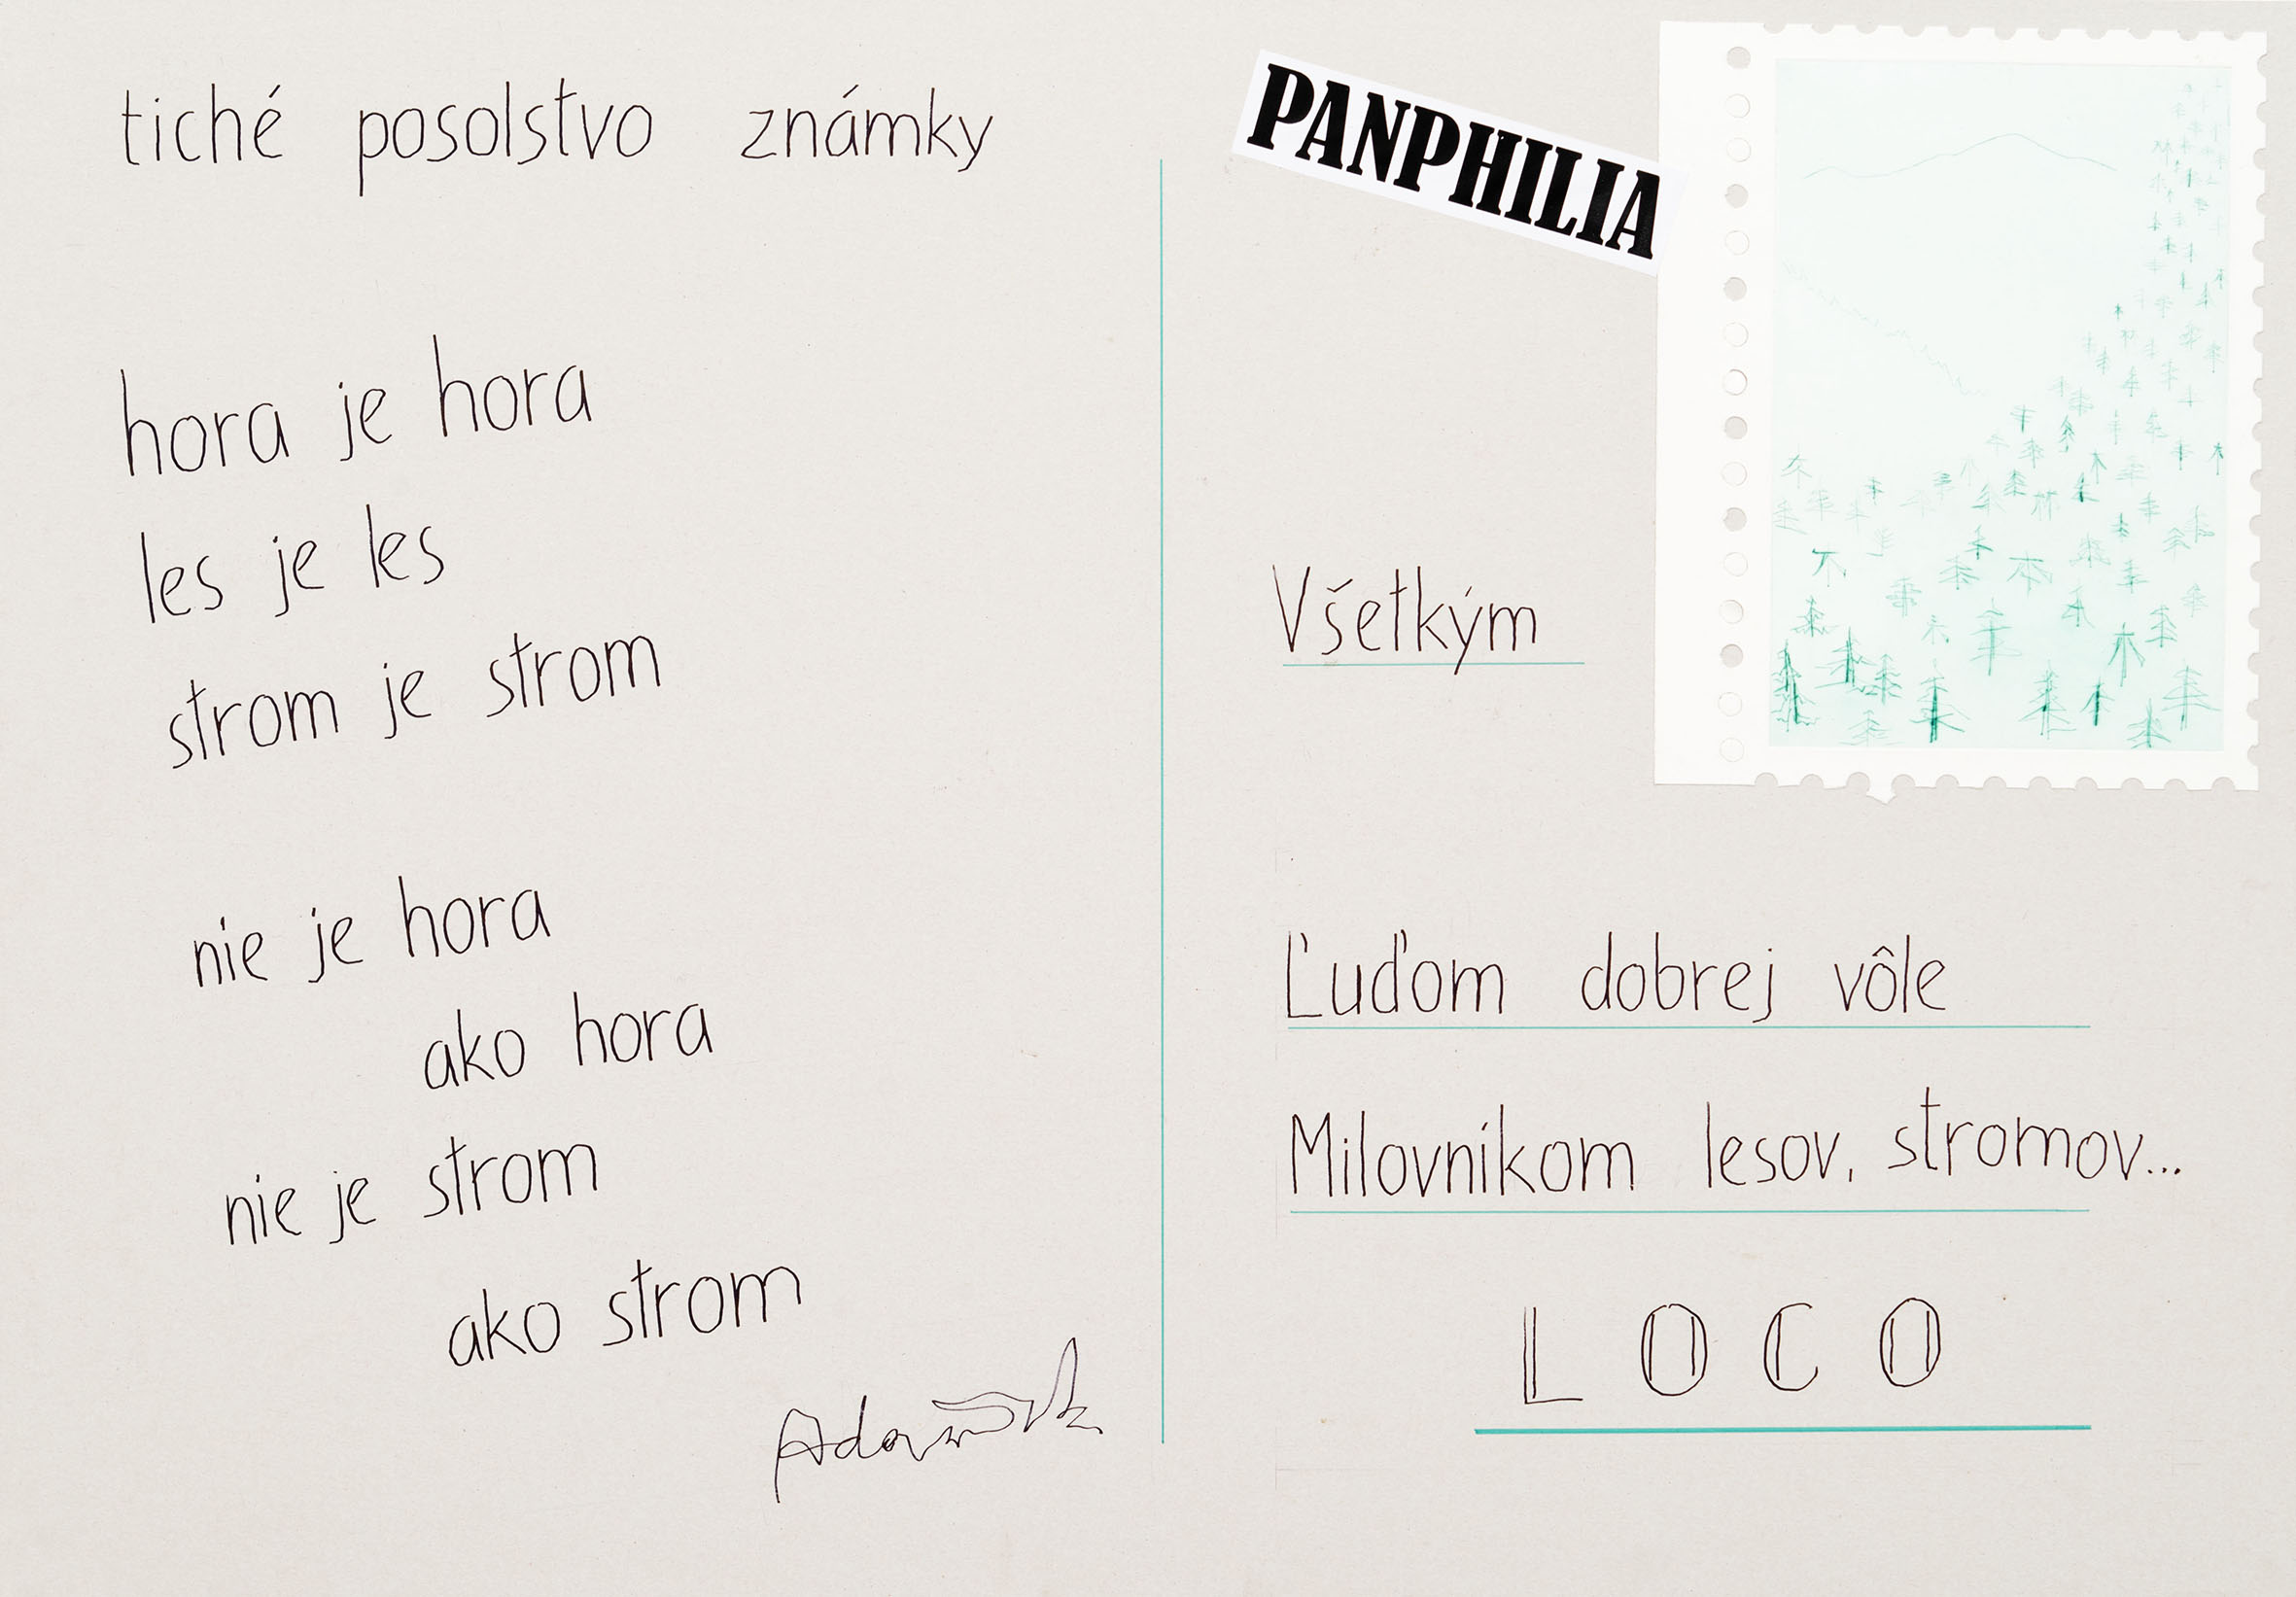 tiché posolstvo známky
hora je hora
les je les
strom je strom
nie je hora
ako hora
nie je strom
ako strom
PANPHILIA
Všetkým
Ľuďom dobrej vôle
Milovníkom lesov, stromov...
LOCO